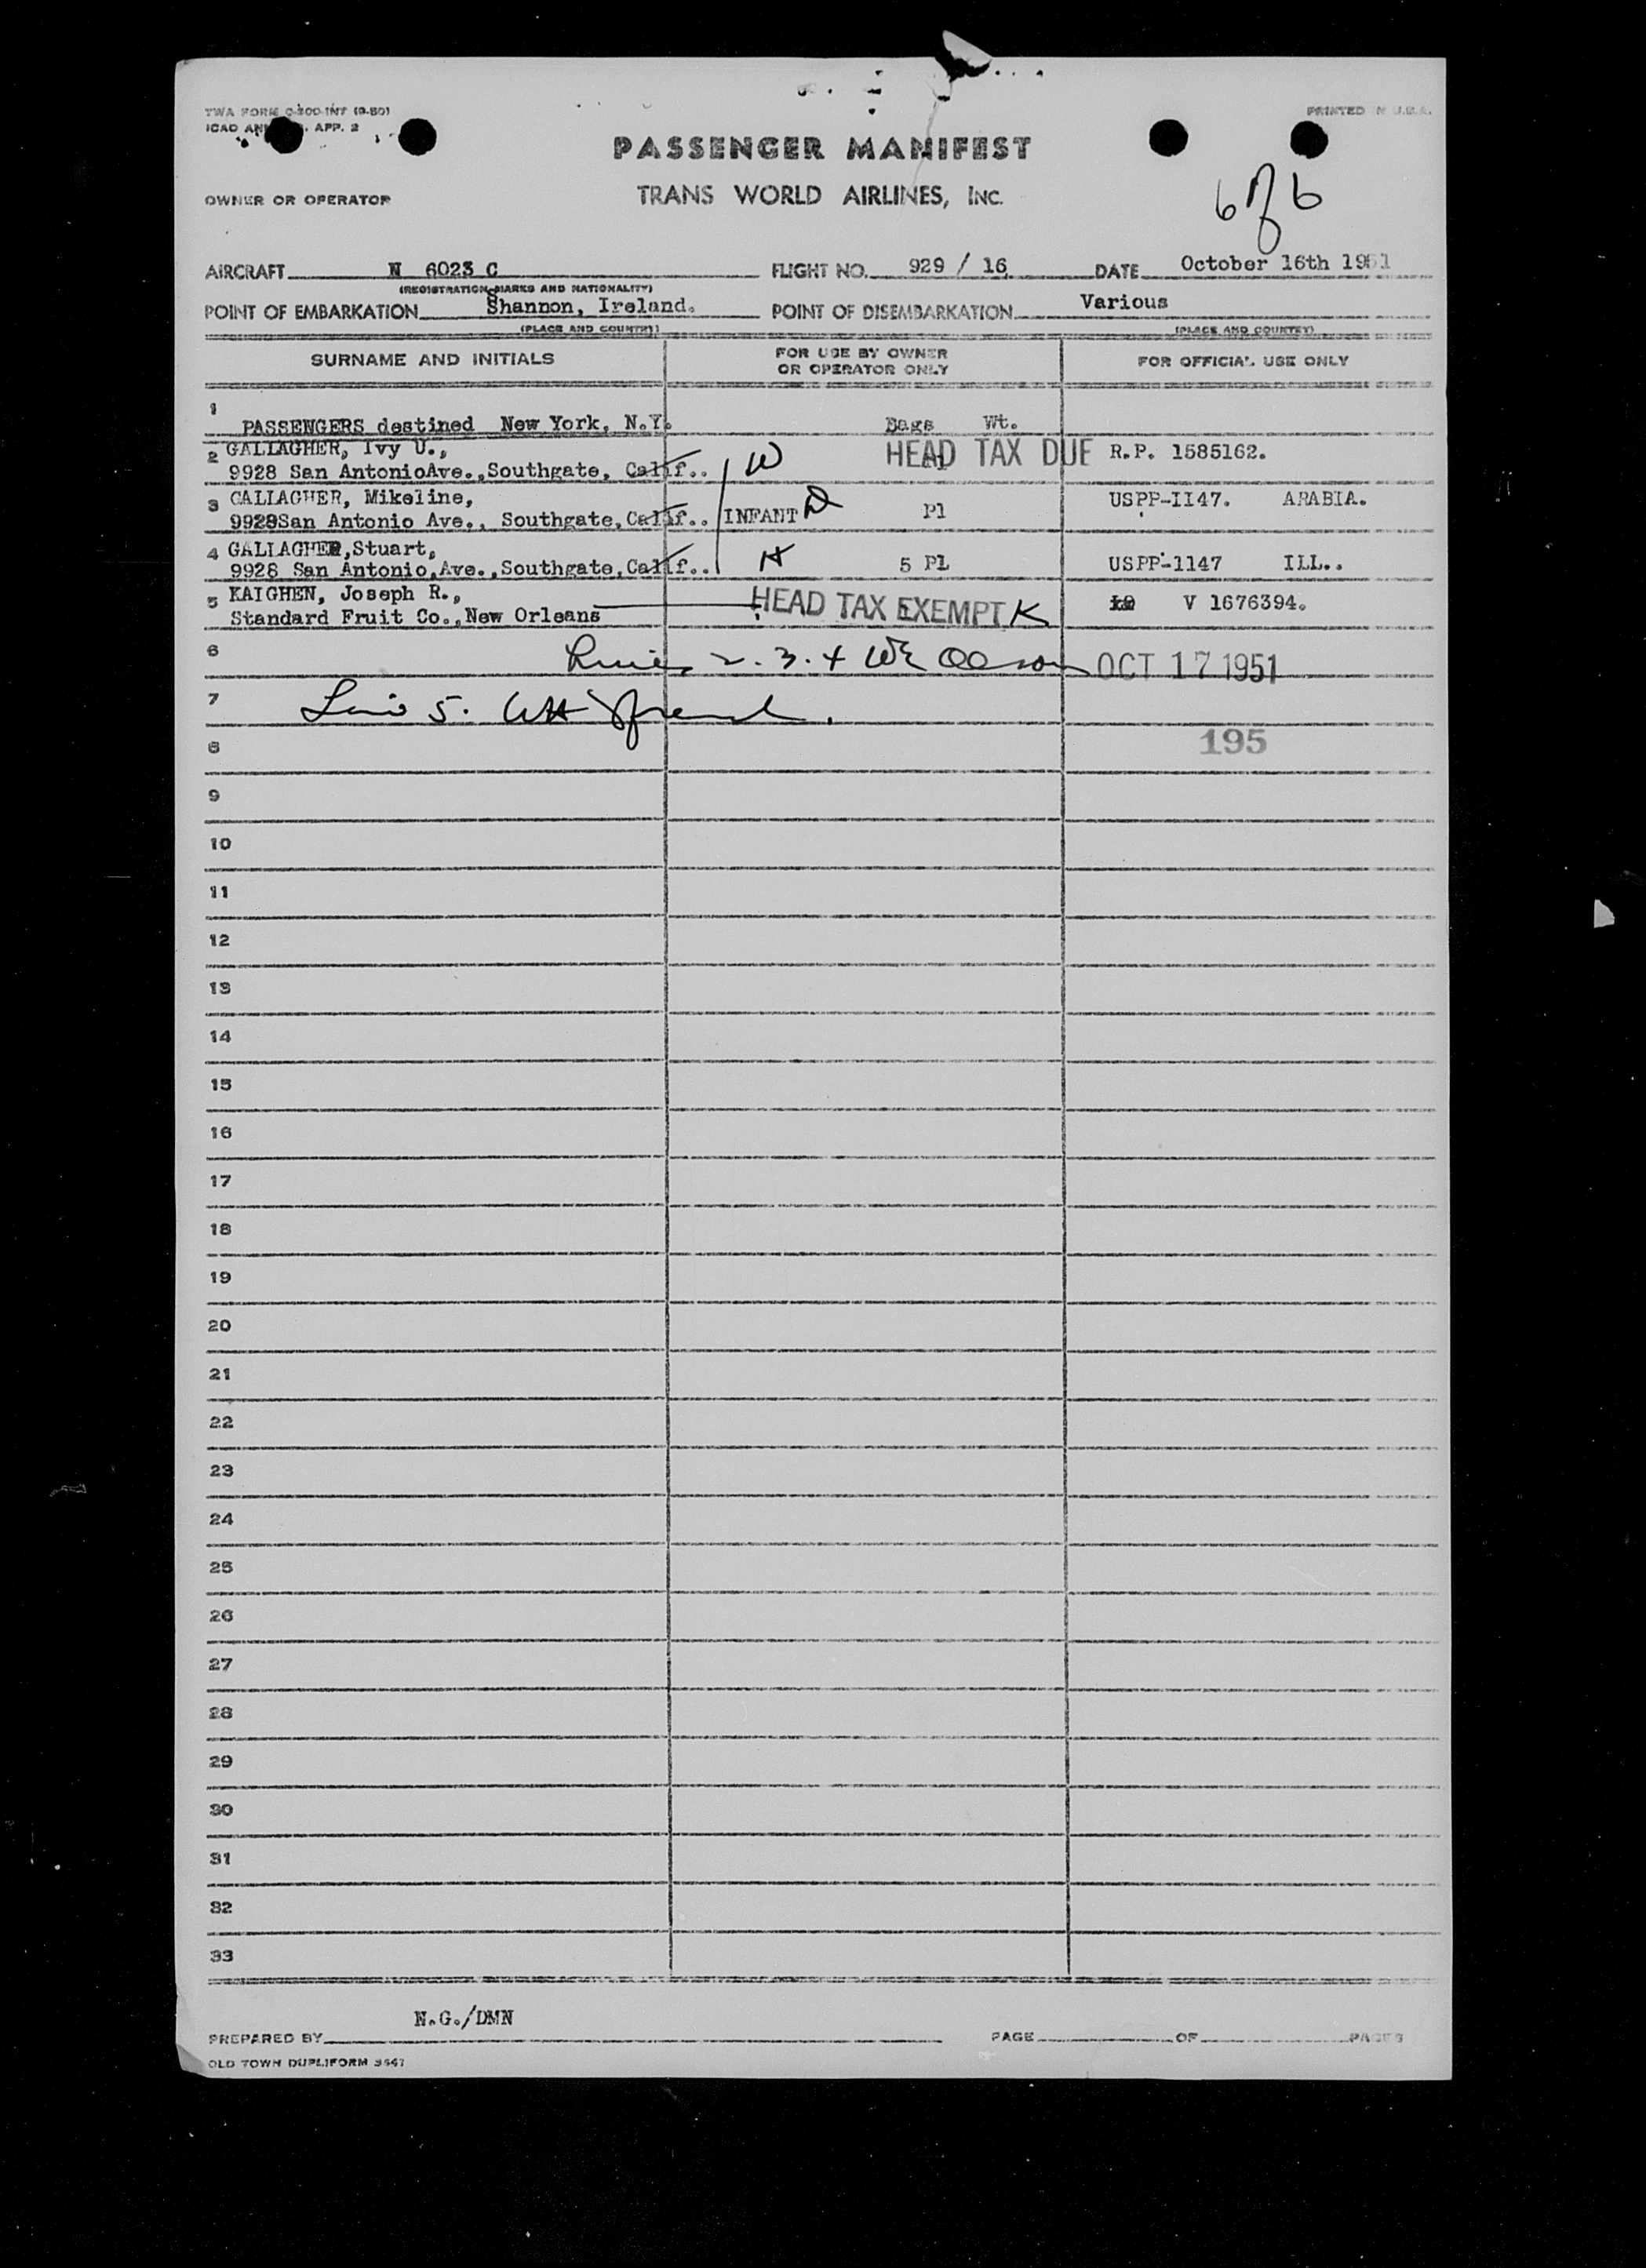 TWA FORM O-200-INT (9-50)
PRINTED IN U.S.A.
ICAO APP. 2
PASSENGER MANIFEST
OWNER OR OPERATOR
TRANS WORLD AIRLINES, INC.
6 of 6
AIRCRAFT N 6023 C FLIGHT NO. 929 / 16 DATE October 16th 1951
(REGISTRATION MARKS AND NATIONALITY)
POINT OF EMBARKATION Shannon, Ireland. POINT OF DISEMBARKATION Various
(PLACE AND COUNTRY) (PLACE AND COUNTRY)
SURNAME AND INITIALS FOR USE BY OWNER OR OPERATOR ONLY FOR OFFICIAL USE ONLY
1 PASSENGERS destined New York, N.Y. Bags Wt.
2 GALLAGHER, Ivy U.,
9928 San AntonioAve.,Southgate, Calif.. W HEAD TAX DUE R.P. 1585162.
3 GALLAGHER, Mikeline,
9928San Antonio Ave., Southgate,Calif.. INFANT D Pl USPP-II47. ARABIA.
4 GALLAGHER,Stuart,
9928 San Antonio,Ave.,Southgate,Calif.. H 5 PL USPP-1147 ILL..
5 KAIGHEN, Joseph R.,
Standard Fruit Co.,New Orleans HEAD TAX EXEMPT K V 1676394.
6 2.3.4 OCT 17 1951
7 5.
8 195
9
10
11
12
13
14
15
16
17
18
19
20
21
22
23
24
25
26
27
28
29
30
31
32
33
N.G./DMN
PREPARED BY PAGE OF PAGES
OLD TOWN DUPLIFORM 3447